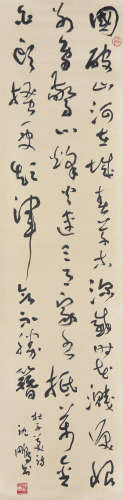 國破山河在城春草木深感時花濺淚恨
別鳥驚心烽火連三月家書抵萬金
白頭搔更短渾欲不勝簪
杜子美詩
沈鵬書